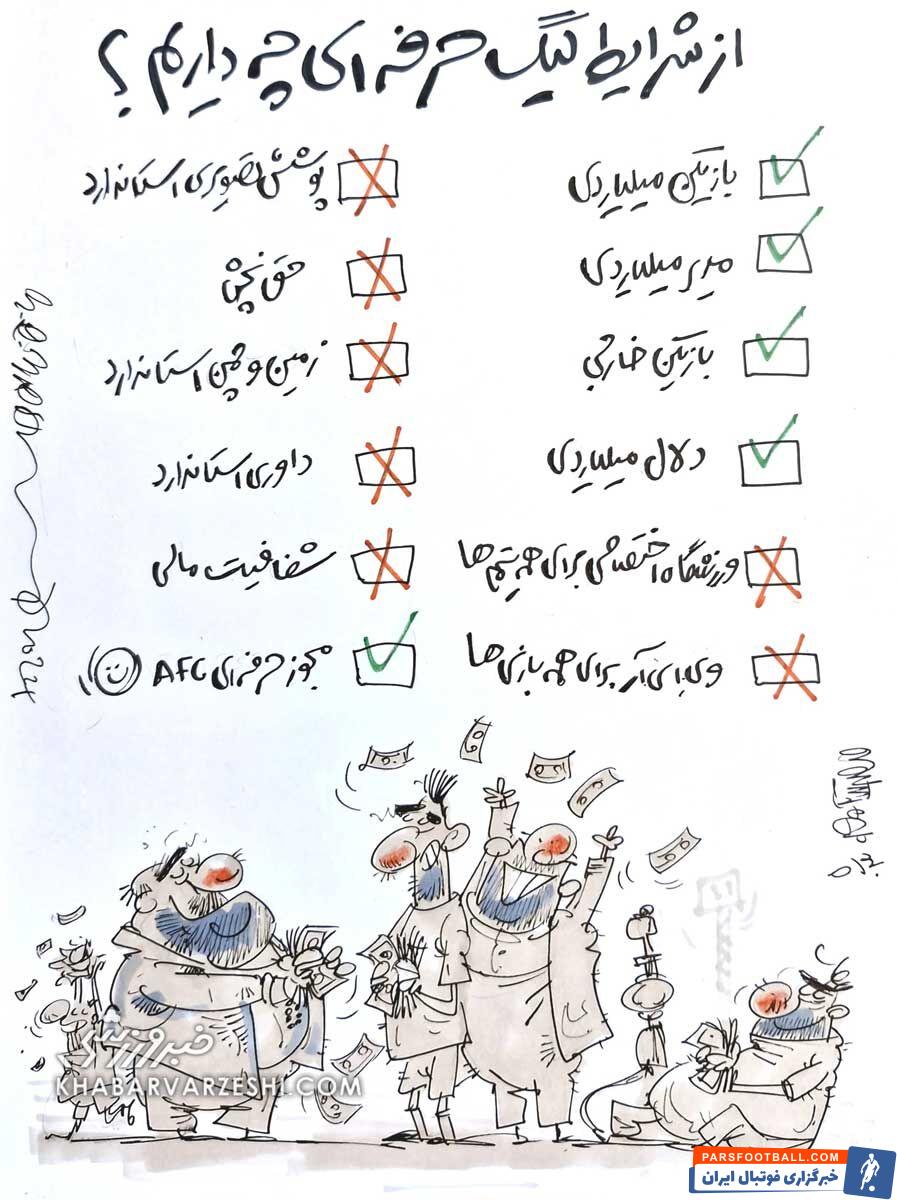 از شرایط لیگ حرفه ای چه داریم؟
بازیکن میلیاردی
مدیر میلیاردی
بازیکن خارجی
دلال میلیاردی
ورزشگاه اختصاصی برای همه تیم ها
وی ای آر برای همه بازی ها
پوشش تصویری استاندارد
حق پخش
زمین و چمن استاندارد
داوری استاندارد
شفافیت مالی
مجوز حرفه ای AFC
خبرورزشی
KHABARVARZESHI.COM
PARSFOOTBALL.COM
خبرگزاری فوتبال ایران